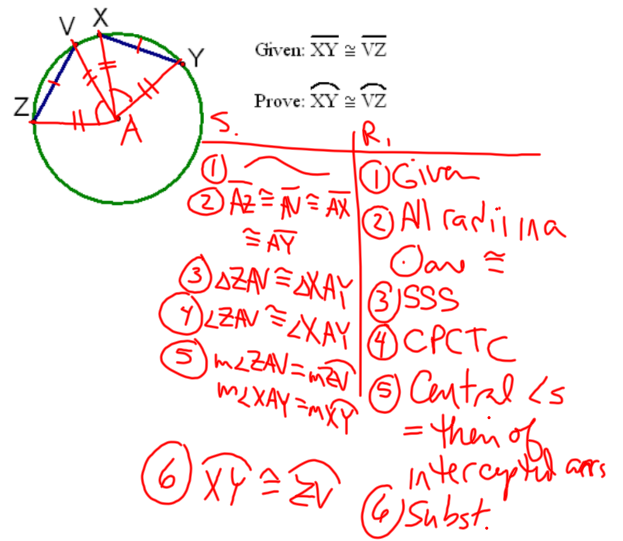 X
V
Y
Z
A
Given: XY ≅ VZ
Prove: XY ≅ VZ
S.
R.
①
① Given
② AZ ≅ AV ≅ AX
≅ AY
② All radii in a
⊙ are ≅
③ △ZAV ≅ △XAY
③ SSS
④ ∠ZAV ≅ ∠XAY
④ CPCTC
⑤ m∠ZAV = mZV
m∠XAY = mXY
⑤ Central ∠s
= of
intercepted arcs
⑥ XY ≅ ZV
⑥ Subst.